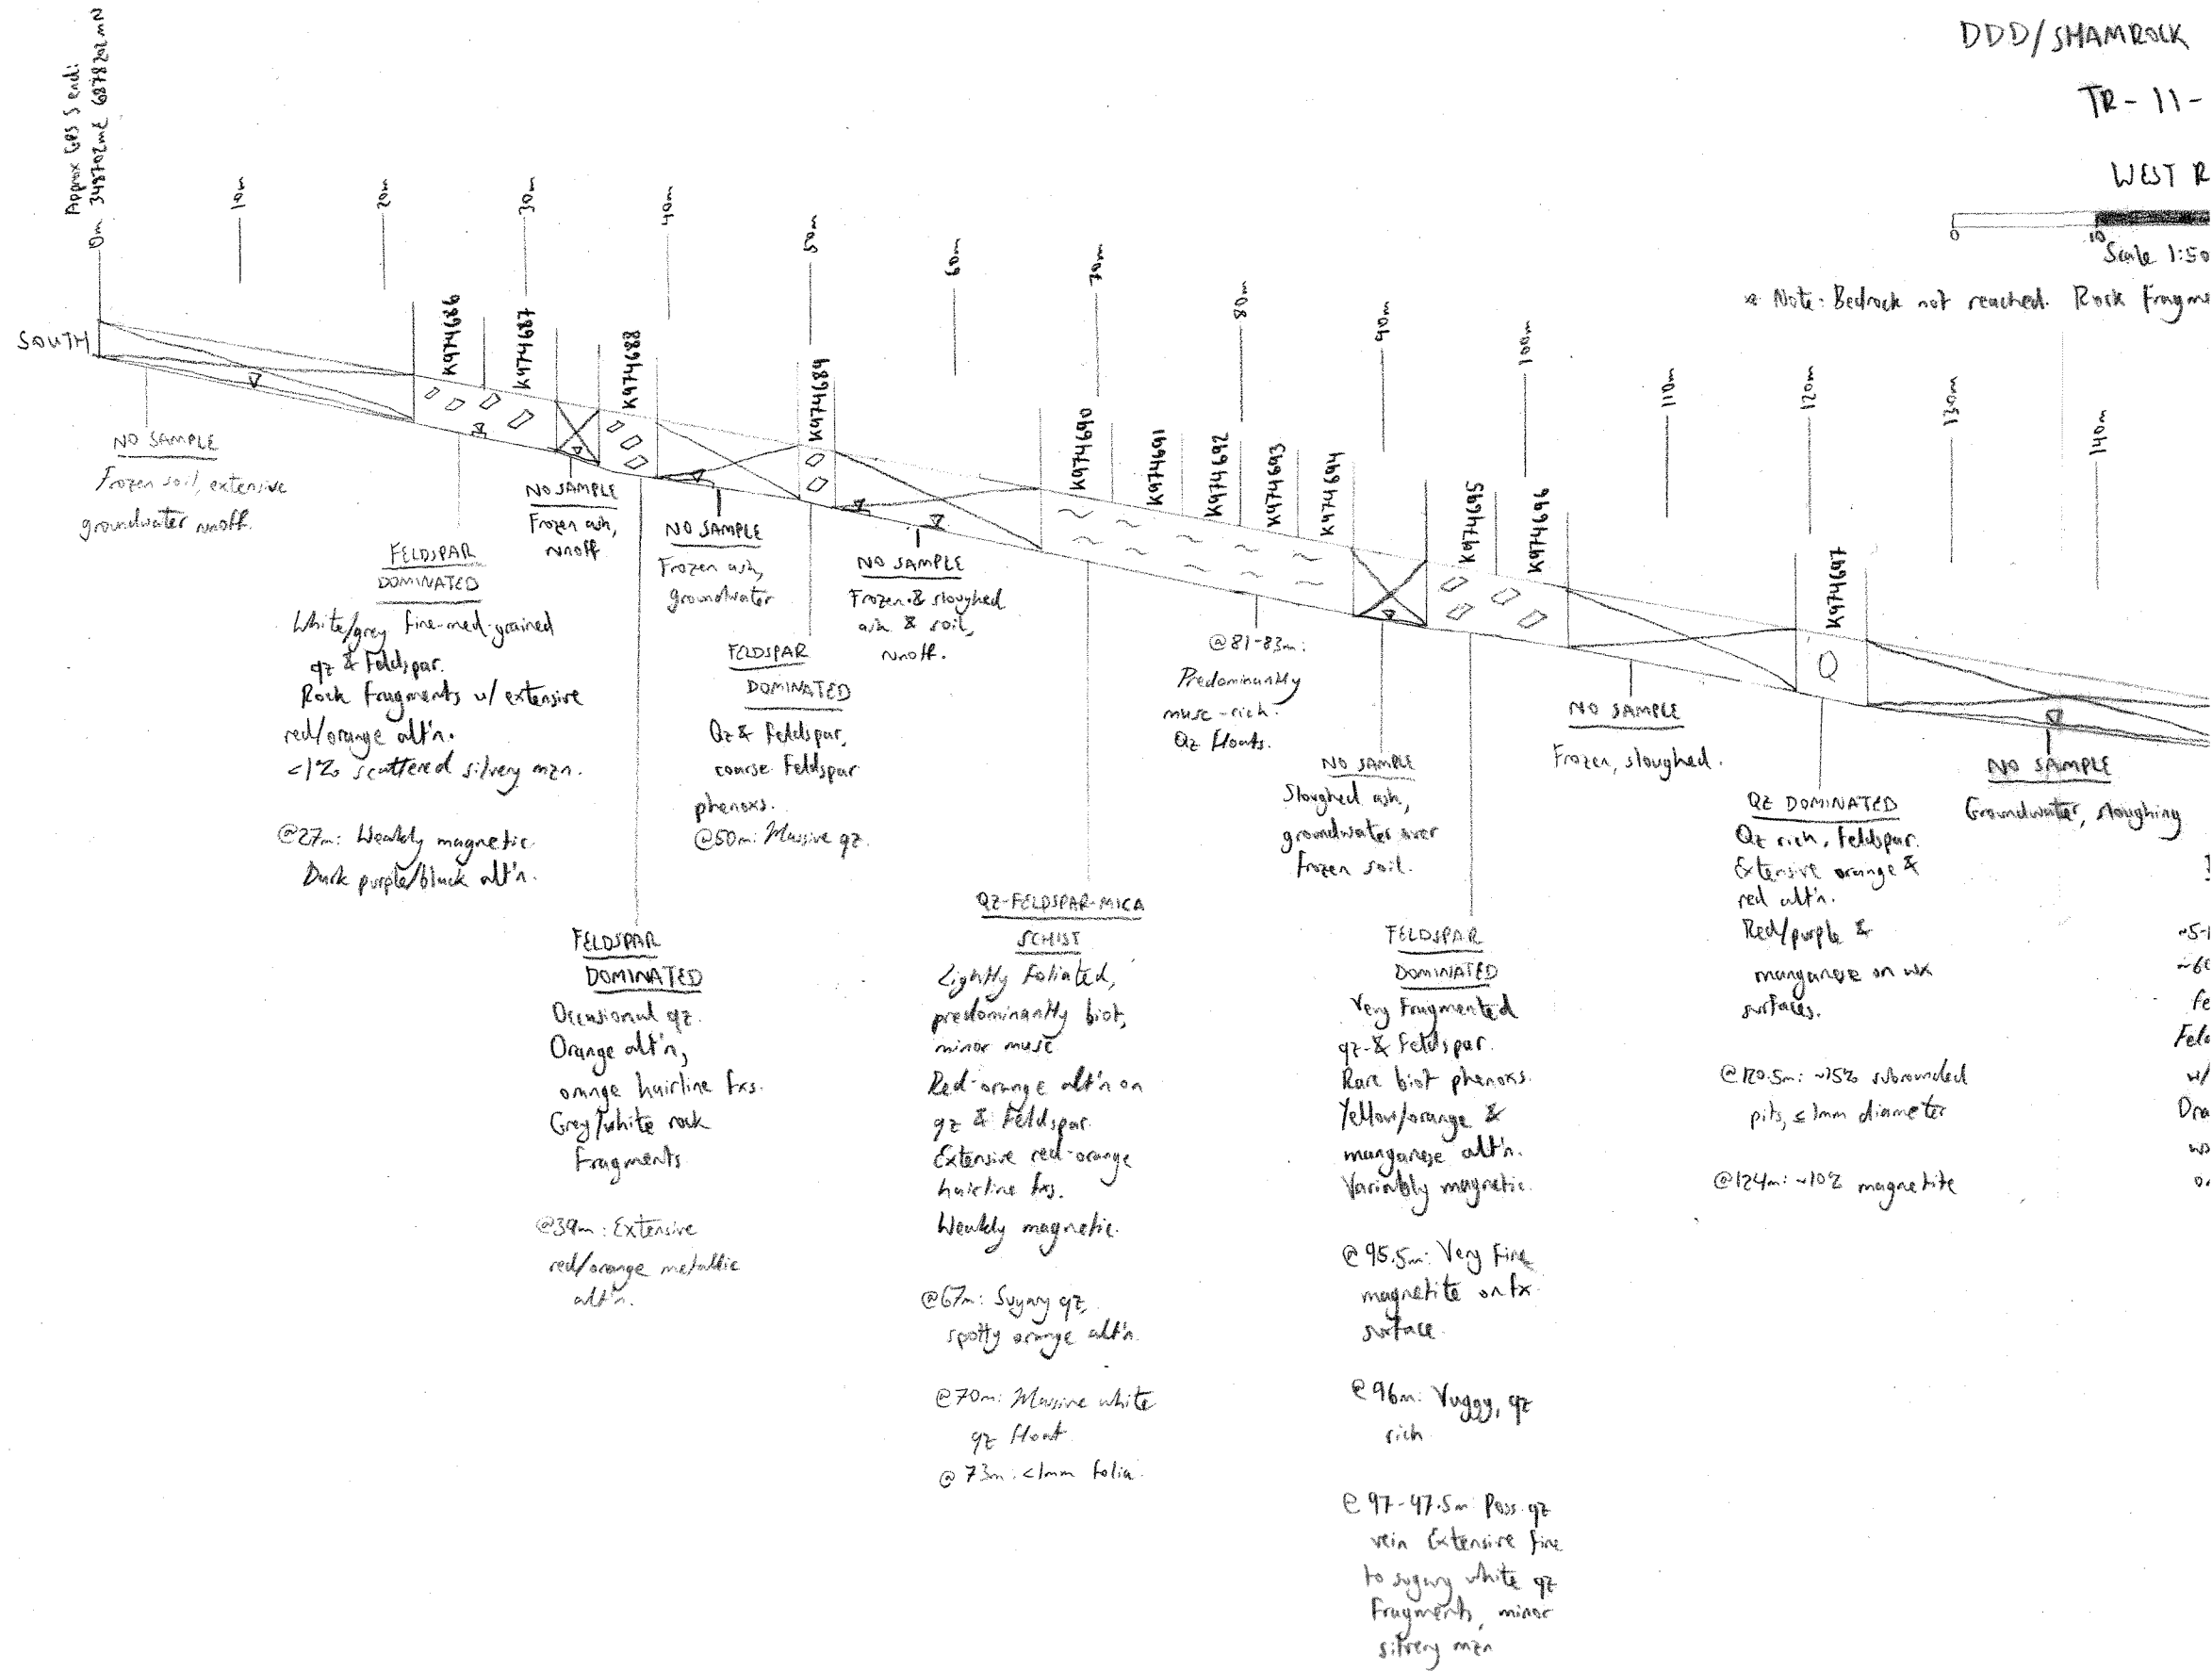 DDD/SHAMROCK
TR-11-
WEST R
0
10
Scale 1:50
* Note: Bedrock not reached. Rock fragme
Approx GPS S end:
0m 348702mE 6878202mN
10m
20m
30m
40m
50m
60m
70m
80m
90m
100m
110m
120m
130m
140m
SOUTH
K974686
K974687
K974688
K974689
K974690
K974691
K974692
K974693
K974694
K974695
K974696
K974697
NO SAMPLE
Frozen soil, extensive
groundwater runoff.
FELDSPAR
DOMINATED
White/grey fine-med-grained
qz & Feldspar.
Rock fragments w/ extensive
red/orange alt'n.
<1% scattered silvery mzn.
@27m: Weakly magnetic.
Dark purple/black alt'n.
NO SAMPLE
Frozen ash,
runoff
FELDSPAR
DOMINATED
Occasional qz.
Orange alt'n,
orange hairline fxs.
Grey/white rock
fragments
@39m: Extensive
red/orange metallic
alt'n.
NO SAMPLE
Frozen ash,
groundwater
FELDSPAR
DOMINATED
Qz & Feldspar,
coarse Feldspar
phenoxs.
@50m: Massive qz.
NO SAMPLE
Frozen & sloughed
ash & soil,
runoff.
QZ-FELDSPAR-MICA
SCHIST
Lightly foliated,
predominantly biot,
minor musc
Red-orange alt'n on
qz & Feldspar
Extensive red-orange
hairline fxs.
Weakly magnetic.
@67m: Sugary qz
spotty orange alt'n.
@70m: Massive white
qz float
@73m: <1mm folia.
@81-83m:
Predominantly
musc-rich.
Qz floats.
NO SAMPLE
Sloughed ash,
groundwater over
frozen soil.
FELDSPAR
DOMINATED
Very fragmented
qz & Feldspar.
Rare biot phenoxs.
Yellow/orange &
manganese alt'n.
Variably magnetic.
@95.5m: Very fine
magnetite on fx
surface.
@96m: Vuggy, qz
rich
@97-97.5m: Poss. qz
vein Extensive fine
to sugary white qz
fragments, minor
silvery mzn
NO SAMPLE
Frozen, sloughed.
QZ DOMINATED
Qz rich, Feldspar.
Extensive orange &
red alt'n.
Red/purple &
manganese on wx
surfaces.
@120.5m: ~15% subrounded
pits, ≤1mm diameter
@124m: ~10% magnetite
NO SAMPLE
Groundwater, sloughing
~5-1
~60
fe
Feld
w/
Dra
wx
or